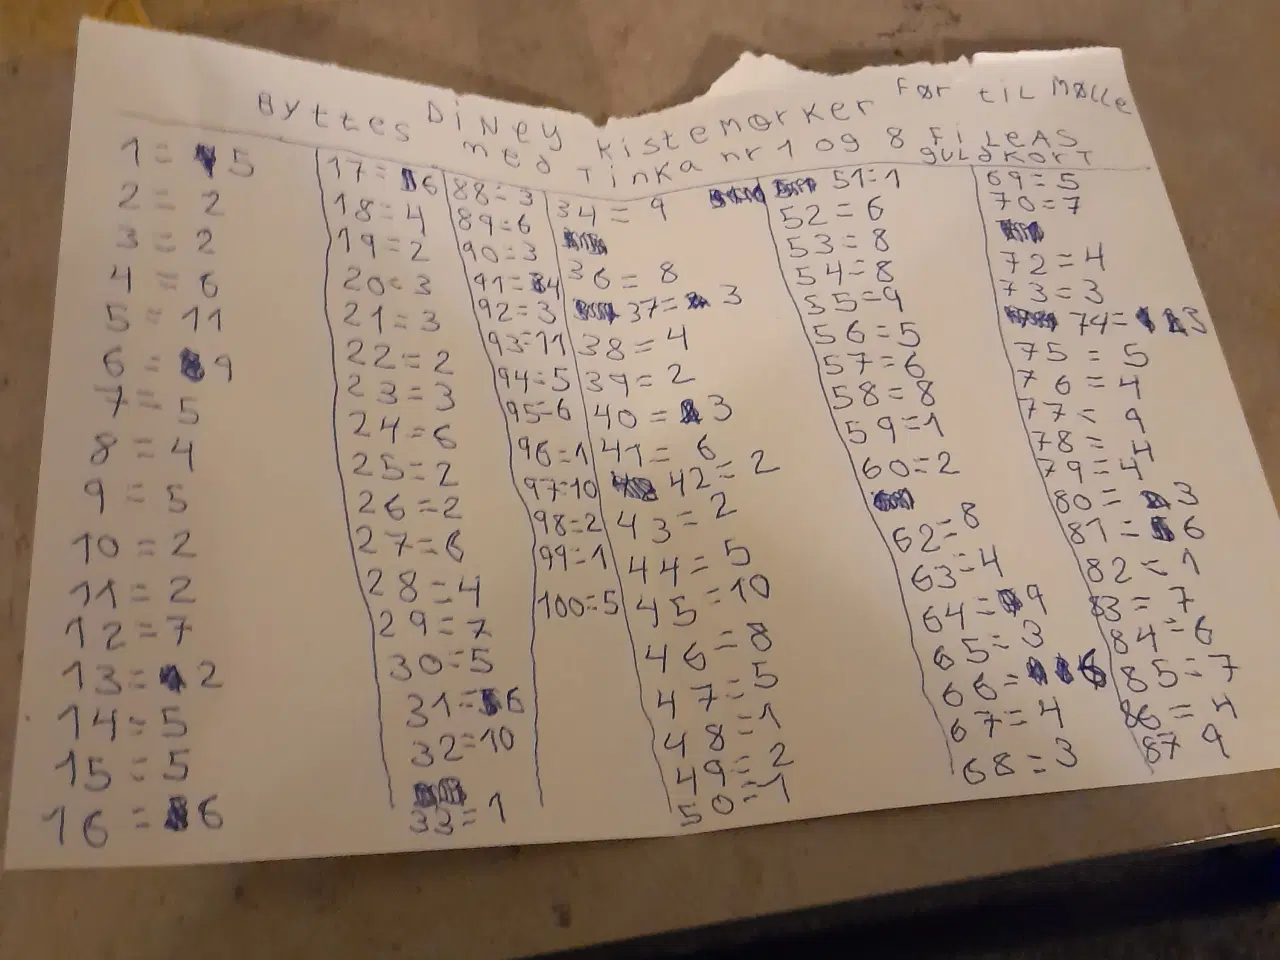 Byttes Diney kistemørker Før til Mølle
med Tinka nr 1 og 8 FiLeAS
guldkort
1 = 5
2 = 2
3 = 2
4 = 6
5 = 11
6 = 9
7 = 5
8 = 4
9 = 5
10 = 2
11 = 2
12 = 7
13 = 2
14 = 5
15 = 5
16 = 6
17 = 6
18 = 4
19 = 2
20 = 3
21 = 3
22 = 2
23 = 3
24 = 6
25 = 2
26 = 2
27 = 6
28 = 4
29 = 7
30 = 5
31 = 6
32 = 10
33 = 1
88 = 3
89 = 6
90 = 3
91 = 4
92 = 3
93 = 11
94 = 5
95 = 6
96 = 1
97 = 10
98 = 2
99 = 1
100 = 5
34 = 9
36 = 8
37 = 3
38 = 4
39 = 2
40 = 3
41 = 6
42 = 2
43 = 2
44 = 5
45 = 10
46 = 8
47 = 5
48 = 1
49 = 2
50 = 1
51 = 1
52 = 6
53 = 8
54 = 8
55 = 9
56 = 5
57 = 6
58 = 8
59 = 1
60 = 2
62 = 8
63 = 4
64 = 9
65 = 3
66 = 6
67 = 4
68 = 3
69 = 5
70 = 7
72 = 4
73 = 3
74 = 3
75 = 5
76 = 4
77 = 9
78 = 4
79 = 4
80 = 3
81 = 6
82 = 1
83 = 7
84 = 6
85 = 7
86 = 4
87 9